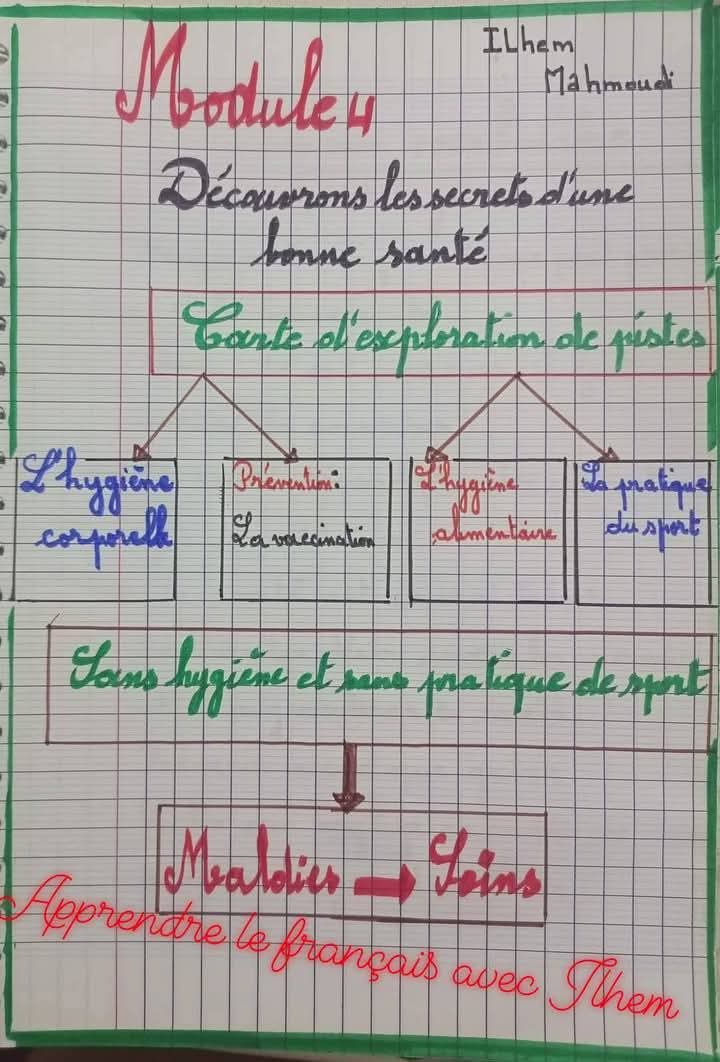 ILhem
Mahmoudi
Module 4
Découvrons les secrets d'une
bonne santé
Carte d'exploration de pistes
L'hygiène
corporelle
Prévention:
La vaccination
L'hygiène
alimentaire
La pratique
du sport
Sans hygiène et sans pratique de sport
Maldies → Soins
Apprendre le français avec Ilhem